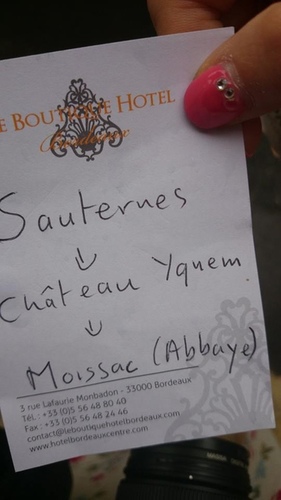 E BOUTIQUE HOTEL
Bordeaux
Sauternes
Château Yquem
Moissac (Abbaye)
3 rue Lafaurie Monbadon - 33000 Bordeaux
Tél. : +33 (0)5 56 48 80 40
Fax : +33 (0)5 56 48 24 46
contact@leboutiquehotelbordeaux.com
www.hotelbordeauxcentre.com